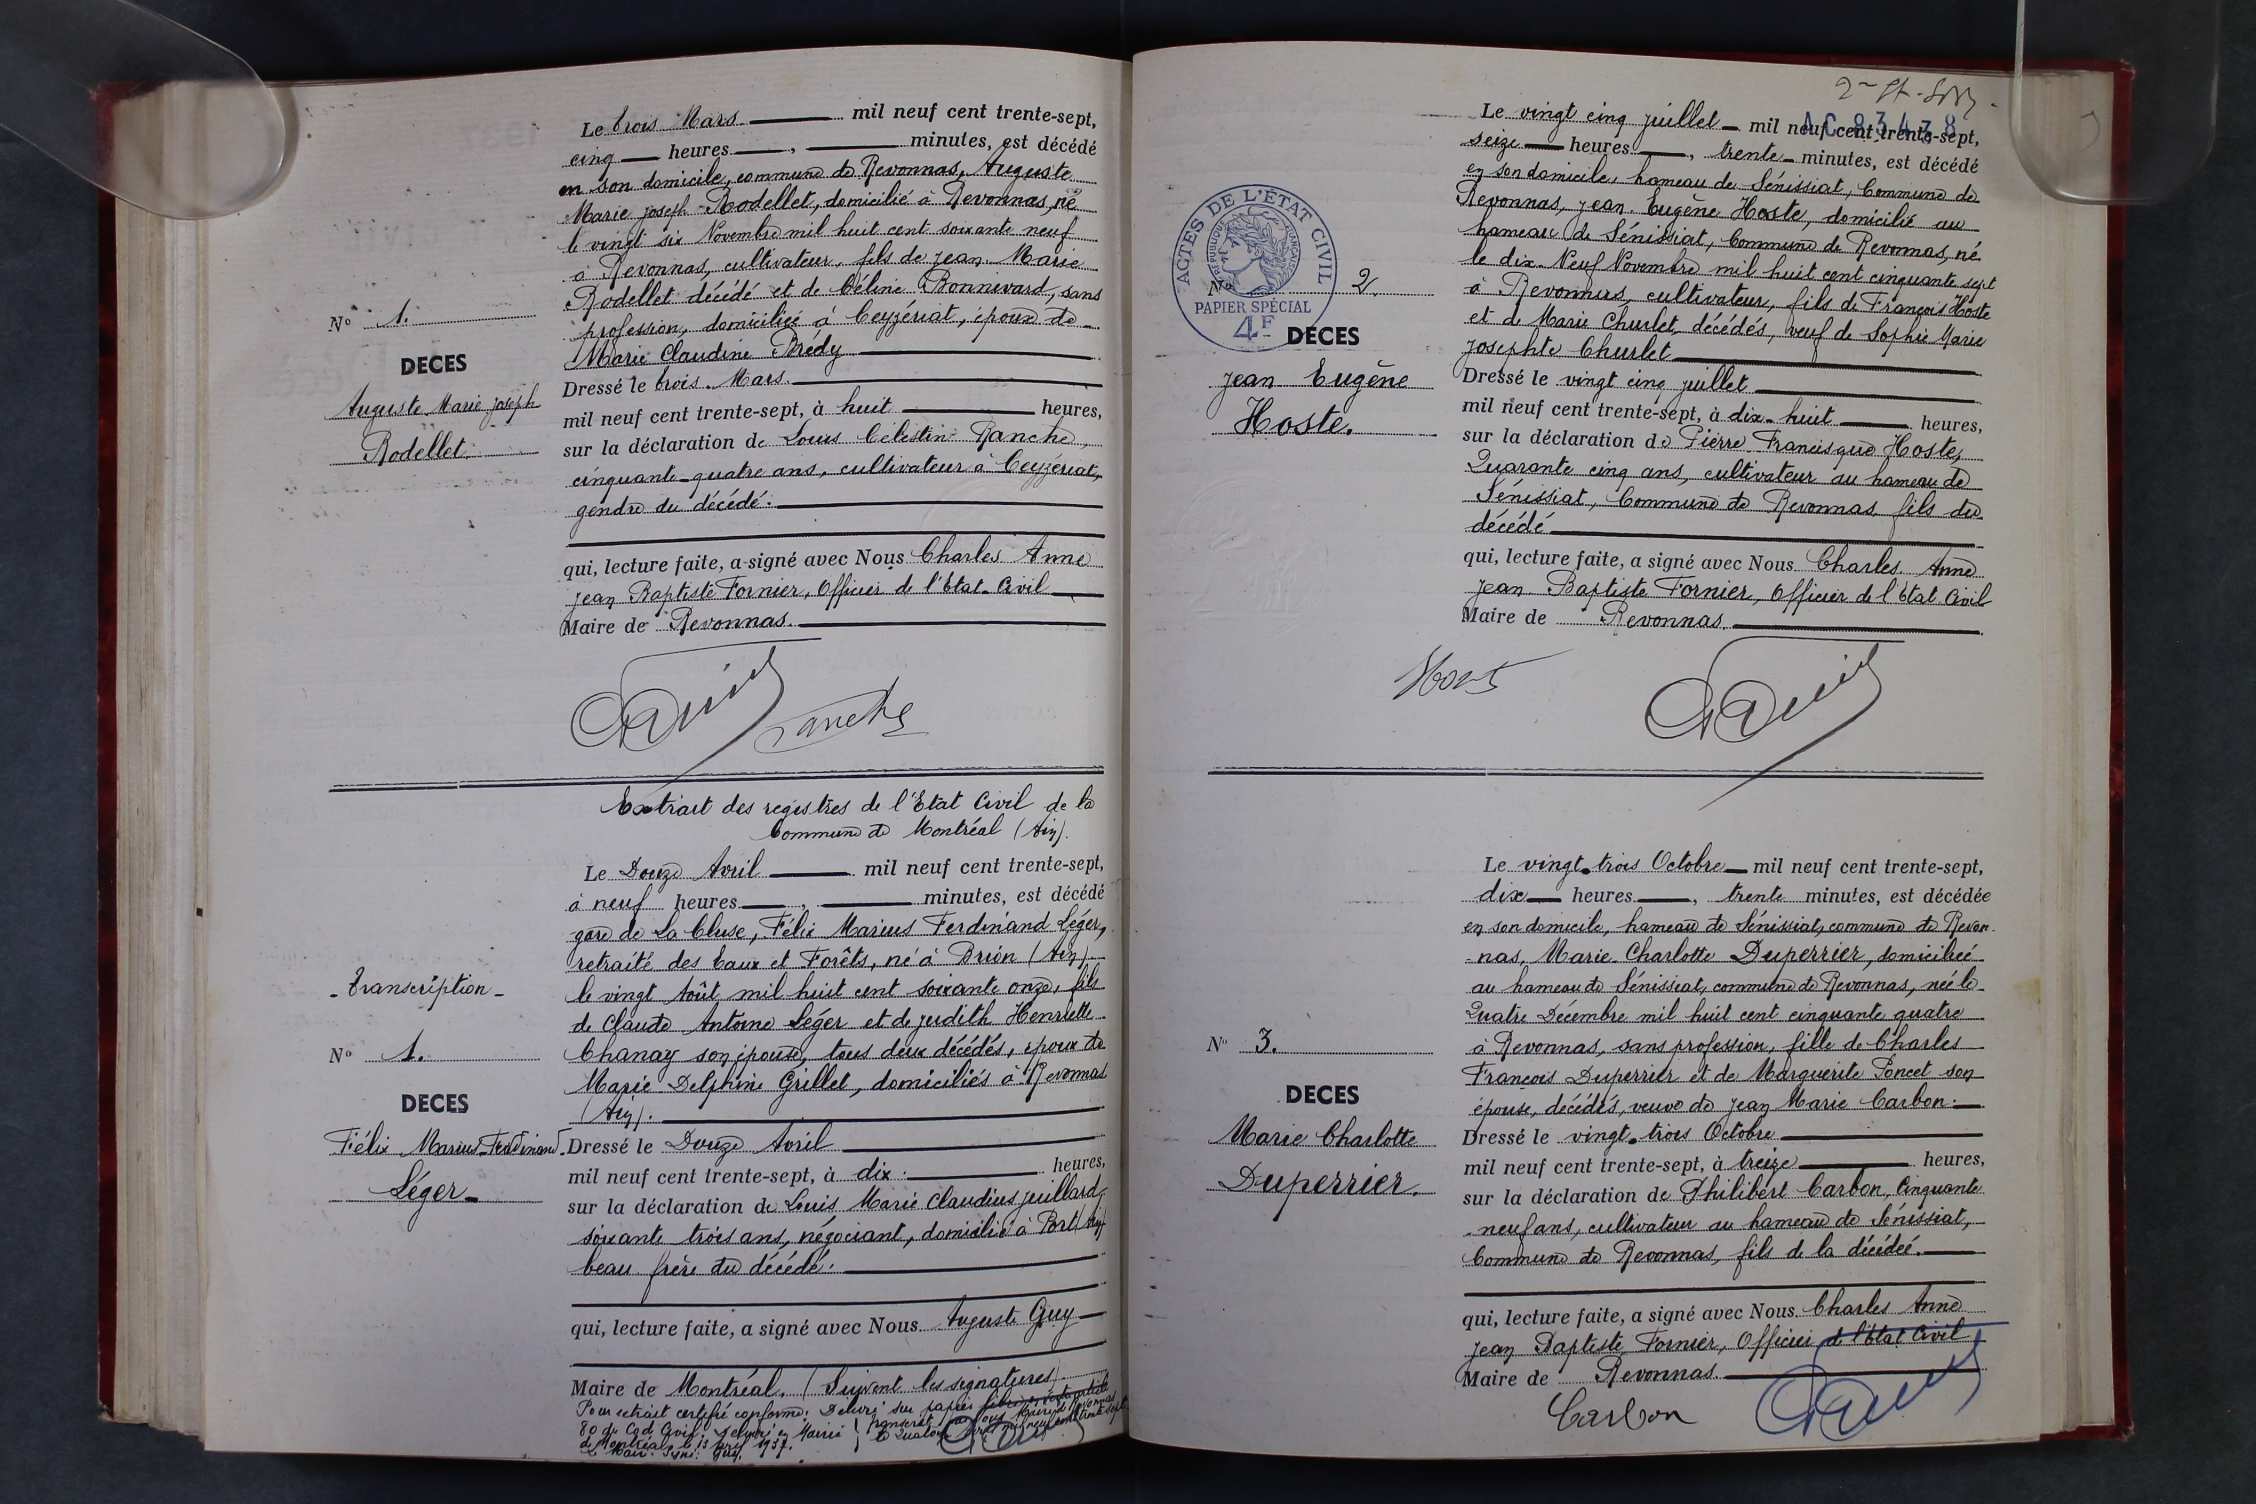 Le trois Mars mil neuf cent trente-sept,
cinq heures , minutes, est décédé
en son domicile, commune de Revonnas, Auguste
Marie Joseph Rodellet, domicilié à Revonnas, né
le vingt six Novembre mil huit cent soixante neuf
à Revonnas, cultivateur, fils de Jean Marie
Rodellet décédé et de Céline Bonnivard, sans
profession, domiciliée à Ceyzériat, époux de
Marie Claudine Brédy
Dressé le trois Mars
mil neuf cent trente-sept, à huit heures,
sur la déclaration de Louis Célestin Ranche,
cinquante-quatre ans, cultivateur à Ceyzériat,
gendre du décédé.
qui, lecture faite, a signé avec Nous Charles Anne
Jean Baptiste Fornier, Officier de l'Etat-Civil
Maire de Revonnas.
Ranche
N° 1.
DECES
Auguste Marie Joseph
Rodellet.
Extrait des registres de l'Etat Civil de la
Commune de Montréal (Ain).
Le Douze Avril mil neuf cent trente-sept,
à neuf heures , minutes, est décédé
gare de La Cluse, Félix Marius Ferdinand Léger,
retraité des Eaux et Forêts, né à Brion (Ain)
le vingt Août mil huit cent soixante onze, fils
de Claude Antoine Léger et de Judith Henriette
Chanay son épouse, tous deux décédés, époux de
Marie Delphine Grillet, domiciliés à Revonnas
(Ain).
Dressé le Douze Avril
mil neuf cent trente-sept, à dix heures,
sur la déclaration de Louis Marie Claudius Juillard,
soixante trois ans, négociant, domicilié à Port (Ain)
beau frère du décédé.
qui, lecture faite, a signé avec Nous Auguste Guy
Maire de Montréal. (Suivent les signatures)
Pour extrait certifié conforme. Délivré sur papier libre
80 du Code Civil
de Montréal le 13 avril 1937.
Le Maire. Signé: Guy.
- Transcription -
N° 1.
DECES
Félix Marius-Ferdinand
Léger
AC 83438
Le vingt cinq juillet mil neuf cent trente-sept,
seize heures , trente minutes, est décédé
en son domicile, hameau de Sénissiat, Commune de
Revonnas, Jean Eugène Hoste, domicilié au
hameau de Sénissiat, Commune de Revonnas, né
le dix Neuf Novembre mil huit cent cinquante sept
à Revonnas, cultivateur, fils de François Hoste
et de Marie Churlet, décédés, veuf de Sophie Marie
Josephte Churlet
Dressé le vingt cinq juillet
mil neuf cent trente-sept, à dix-huit heures,
sur la déclaration de Pierre Francisque Hoste,
Quarante cinq ans, cultivateur au hameau de
Sénissiat, Commune de Revonnas, fils du
décédé
qui, lecture faite, a signé avec Nous Charles Anne
Jean Baptiste Fornier, Officier de l'Etat Civil
Maire de Revonnas.
ACTES DE L'ÉTAT CIVIL
RÉPUBLIQUE FRANÇAISE
PAPIER SPÉCIAL
4F
N° 2.
DECES
Jean Eugène
Hoste.
Le vingt-trois Octobre mil neuf cent trente-sept,
dix heures , trente minutes, est décédée
en son domicile, hameau de Sénissiat, commune de Revon-
nas, Marie-Charlotte Duperrier, domiciliée
au hameau de Sénissiat, commune de Revonnas, née le
Quatre Décembre mil huit cent cinquante quatre
à Revonnas, sans profession, fille de Charles
François Duperrier et de Marguerite Poncet son
épouse, décédés, veuve de Jean Marie Carbon.
Dressé le vingt-trois Octobre
mil neuf cent trente-sept, à treize heures,
sur la déclaration de Philibert Carbon, Cinquante
neuf ans, cultivateur au hameau de Sénissiat,
Commune de Revonnas, fils de la décédée.
qui, lecture faite, a signé avec Nous Charles Anne
Jean Baptiste Fornier, Officier de l'Etat Civil
Maire de Revonnas.
Carbon
N° 3.
DECES
Marie Charlotte
Duperrier.